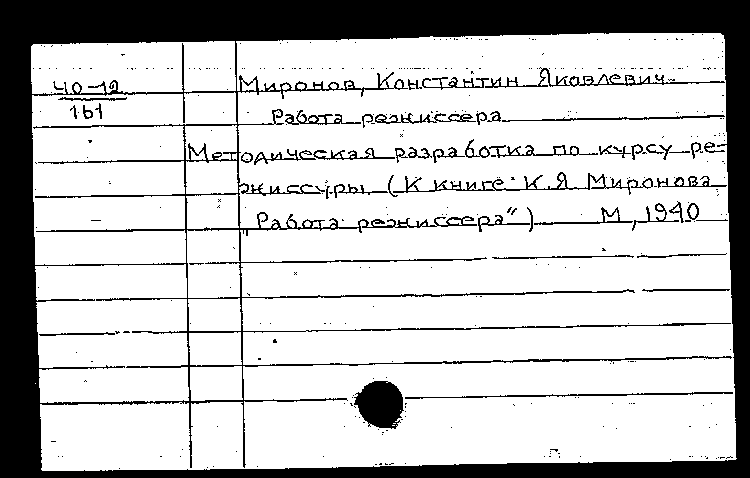 40-12
161
Миронов, Константин Яковлевич.
Работа режиссера
Методическая разработка по курсу ре-
жиссуры (К книге К.Я Миронова
„Работа режиссера“) М, 1940